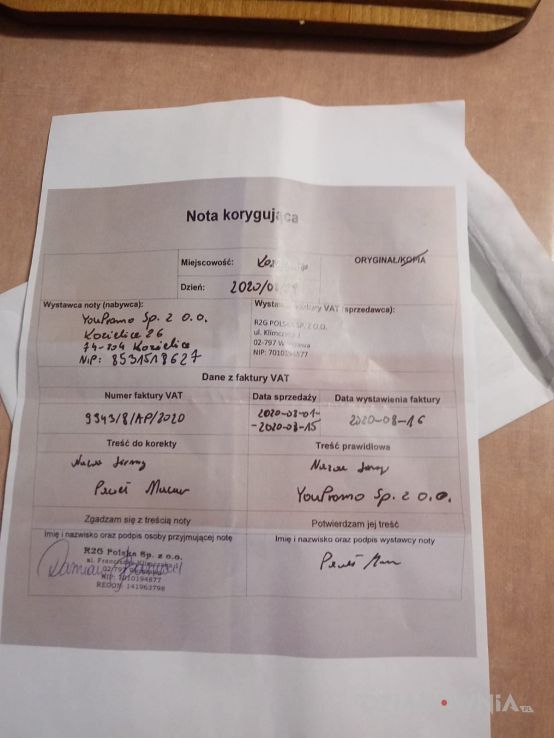 Nota korygująca
Miejscowość:
ORYGINAŁ/KOPIA
Dzień: 2020/08/
Wystawca noty (nabywca):
YouPromo Sp. z o.o.
Kozielice 26
74-204 Kozielice
NIP: 8531518627
Wystawca faktury VAT (sprzedawca):
R2G POLSKA SP. Z O.O.
ul. Klimczaka 1
02-797 Warszawa
NIP: 7010194877
Dane z faktury VAT
Numer faktury VAT
Data sprzedaży
Data wystawienia faktury
9343/8/AP/2020
2020-08-01-
-2020-08-15
2020-08-16
Treść do korekty
Treść prawidłowa
Nazwa firmy
Paweł
Nazwa firmy
YouPromo Sp. z o.o.
Zgadzam się z treścią noty
Potwierdzam jej treść
Imię i nazwisko oraz podpis osoby przyjmującej notę
Imię i nazwisko oraz podpis wystawcy noty
R2G Polska Sp. z o.o.
Damian
NIP: 7010194877
REGON: 141963798
Paweł